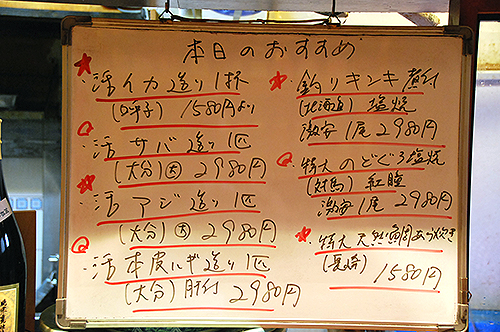 本日のおすすめ
活イカ造り1杯
(呼子) 1580円より
活サバ造り1匹
(大分) 大 2980円
活アジ造り1匹
(大分) 大 2980円
活本皮ハギ造り1匹
(大分) 肝付 2980円
釣りキンキ煮付
(北海道) 塩焼
激安1尾2980円
特大のどぐろ塩焼
(対馬) 紅瞳
激安1尾2980円
特大天然真鯛あら炊き
(長崎)
1580円